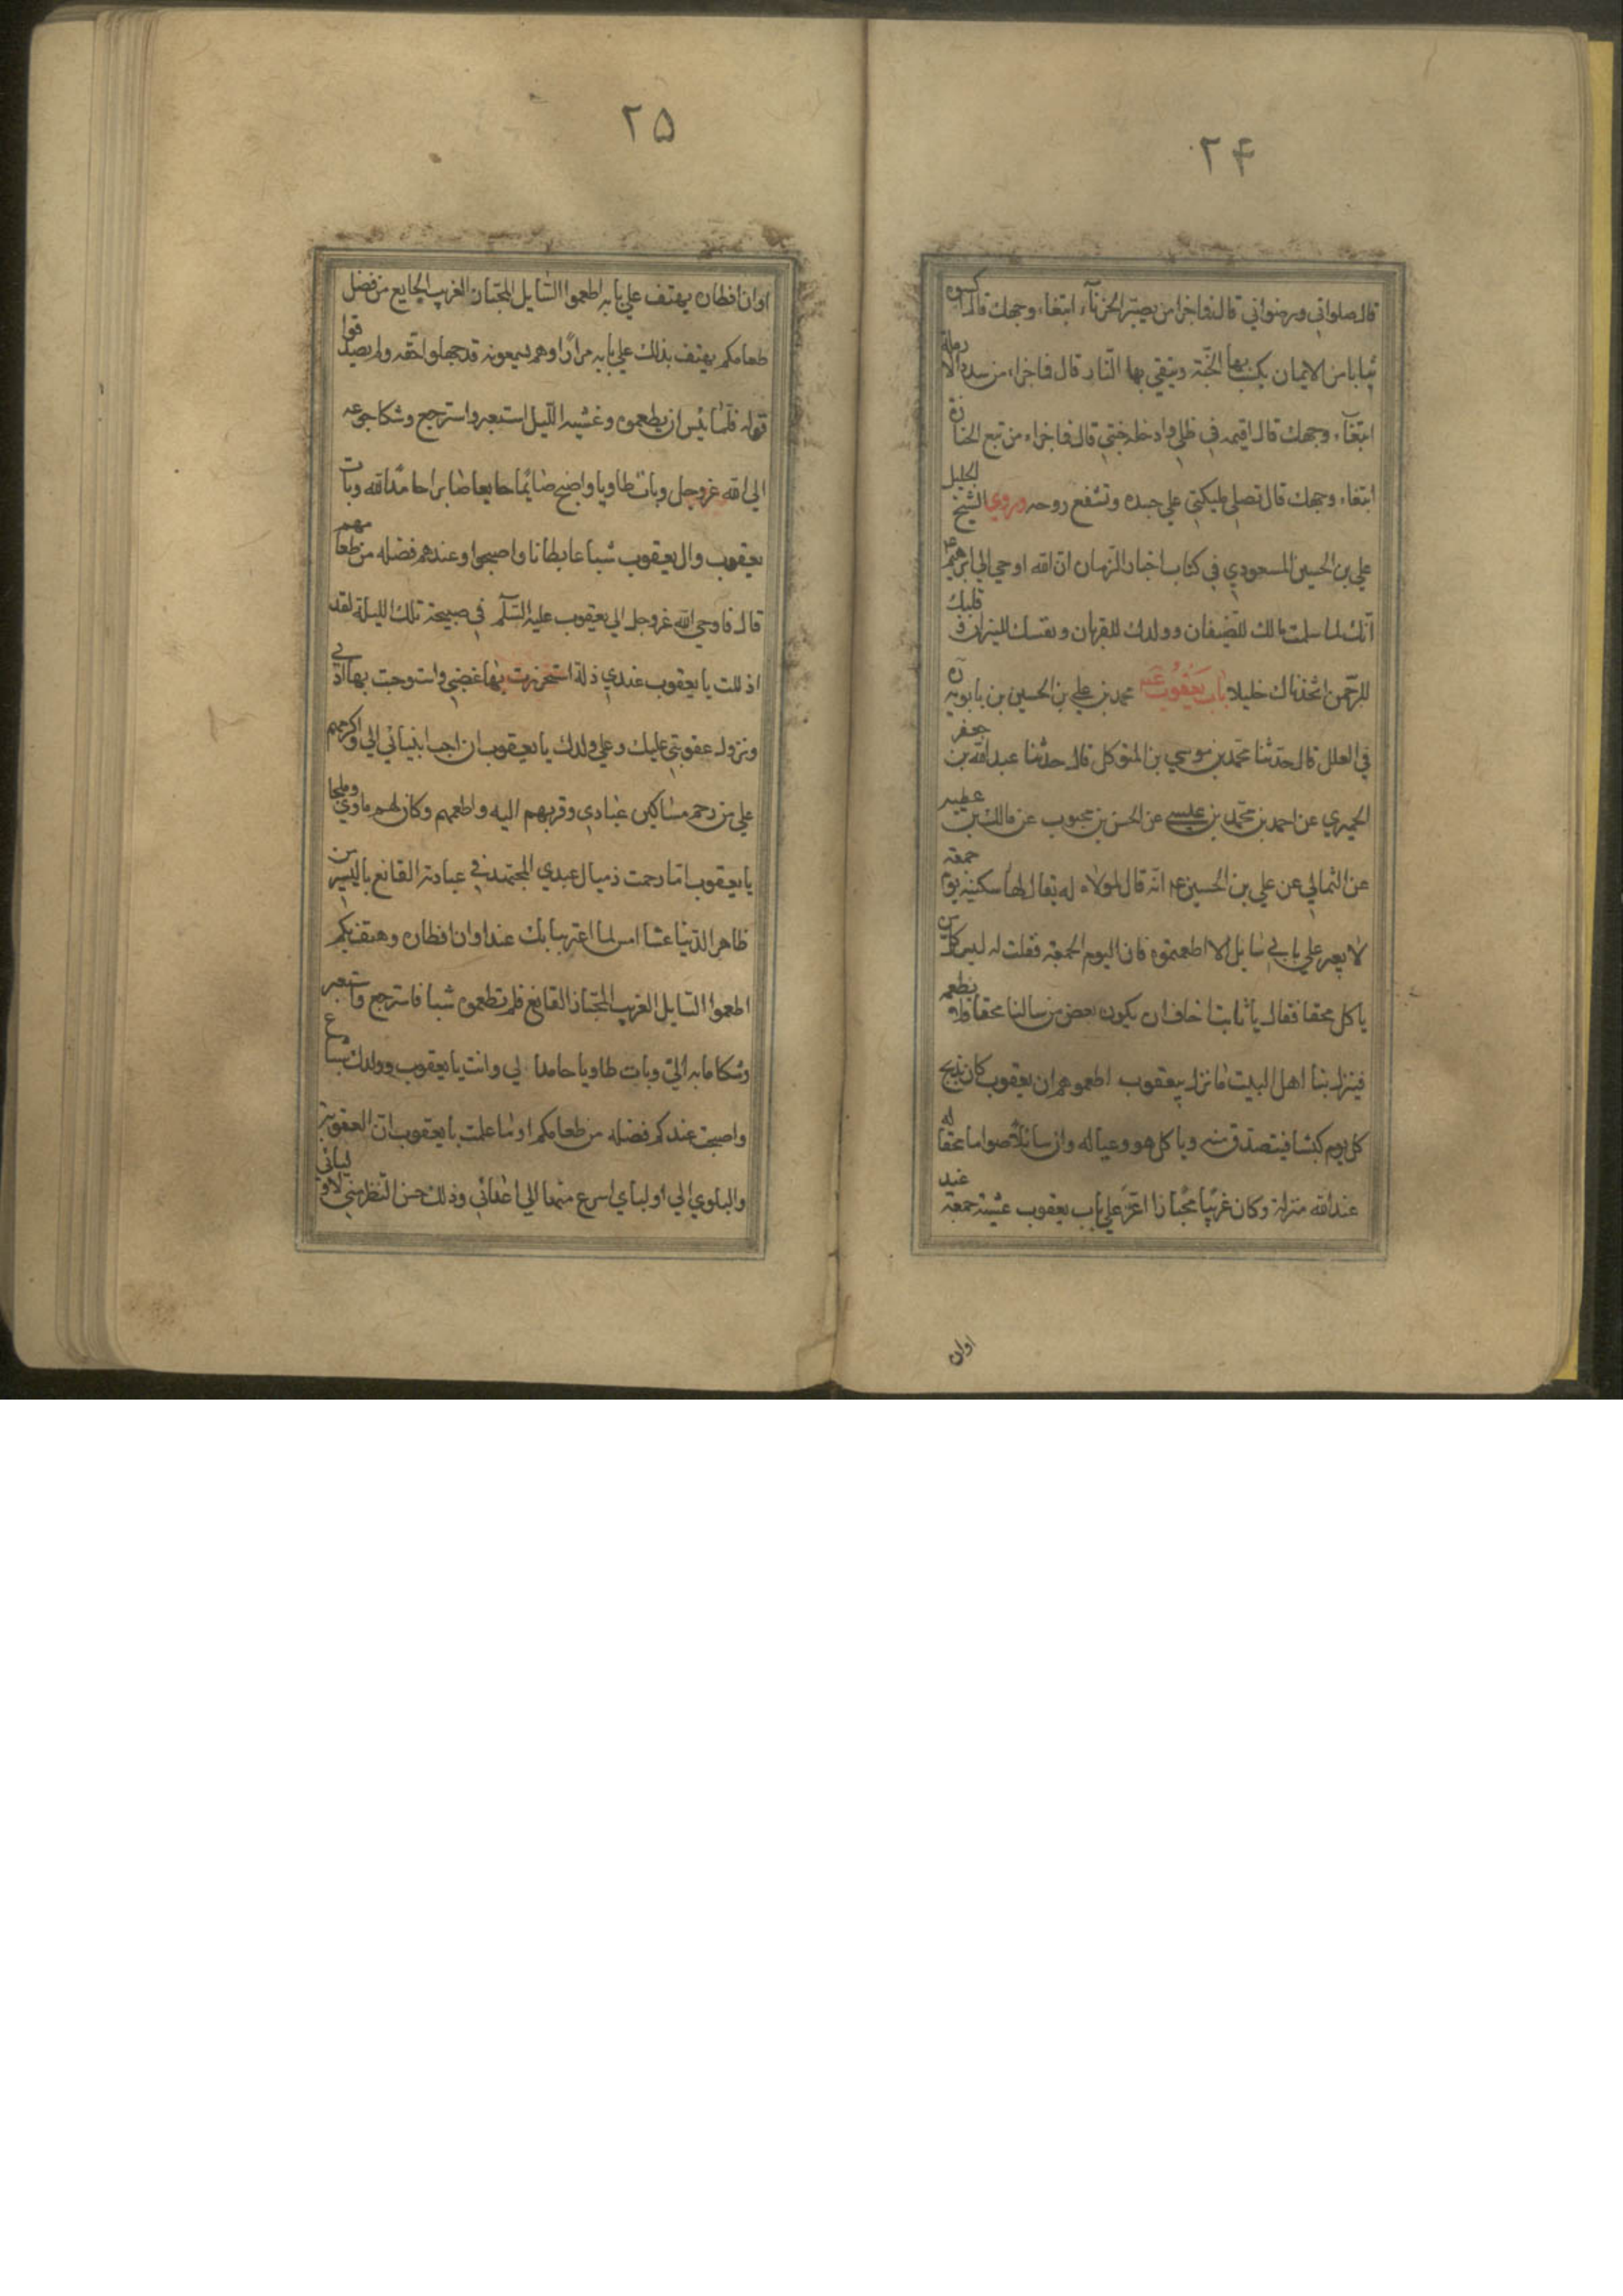 ۲۴
قال صلواتي ورضواني قال فما جزا من يصبر الحزناء ابتغاء وجهك قال اكسوه
ثيابا من الايمان يكتب بها الجنة ويتقي بها النار قال فما جزاء من سدد الارملة
ابتغاء وجهك قال اقيمه في ظلي وادخله جنتي قال فما جزاء من تبع الجنازة
ابتغاء وجهك قال تصلي مليكتي علي جسده وتشفع روحه وروي الشيخ الجليل
علي بن الحسين المسعودي في كتاب اخبار الزمان ان الله اوحي الي ابرهيم ع
انك لما سلمت مالك للضيفان وولدك للقربان ونفسك للنيران وقلبك
للرحمن اتخذناك خليلا باب يعقوب محمد بن علي بن الحسين بن بابويه ره
في العلل قال حدثنا محمد بن موسي بن المتوكل قال حدثنا عبد الله بن جعفر
الحميري عن احمد بن محمد بن عيسي عن الحسن بن محبوب عن مالك بن عطيه
عن الثمالي عن علي بن الحسين ع انه قال لمولاه له يقال لها سكينه يوم جمعة
لا يعبر علي بابي سايل الا اطعمتوه فان اليوم الجمعة فقلت له ليس كل من
ياكل محقا فقال يا ثابت اخاف ان يكون بعض من سالنا محقا فلا نطعمه
فينزل بنا اهل البيت ما نزل بيعقوب اطعموهم ان يعقوب كان يذبح
كل يوم كبشا فيتصدق منه وياكل هو وعياله وان سائلا صواما محقا له
عند الله منزلة وكان غريبا مجتازا اعتر علي باب يعقوب عشية جمعة عند
اوان
۲۵
اوان افطاره يهتف علي بابه اطعموا السايل المجتاز الغريب الجايع من فضل
طعامكم يهتف بذلك علي بابه مرارا وهم يسمعونه قد جهلوا حقه ولم يصدقوا
قوله فلما يئس ان يطعموه وغشيه الليل استعبر واسترجع وشكا جوعه
الي الله عز وجل وبات طاويا واصبح صايما جايعا صابرا حامدا لله وبات
يعقوب وال يعقوب شباعا بطانا واصبحوا وعندهم فضله من طعامهم
قال فاوحي الله عز وجل الي يعقوب عليه السلم في صبيحة تلك الليلة لقد
اذللت يا يعقوب عبدي ذلة استجررت بها غضبي واستوجبت بها ادبي
ونزول عقوبتي عليك وعلي ولدك يا يعقوب ان احب انبيائي الي واكرمهم
علي من رحم مساكين عبادي وقربهم اليه واطعمهم وكان لهم ماوي وملجا
يا يعقوب اما رحمت ذميال عبدي المجتهد في عبادته القانع باليسير من
ظاهر الدنيا عشا امس لما اعتر ببابك عند اوان افطاره وهتف بكم
اطعموا السايل الغريب المجتاز القانع فلم تطعموه شيا فاسترجع واستعبر
وشكا ما به الي وبات طاويا حامدا لي وانت يا يعقوب وولدك شباع
واصبحت عندكم فضله من طعامكم او ما علمت يا يعقوب ان العقوبة
والبلوي الي اوليائي اسرع منها الي اعدائي وذلك حسن النظر مني لاوليائي